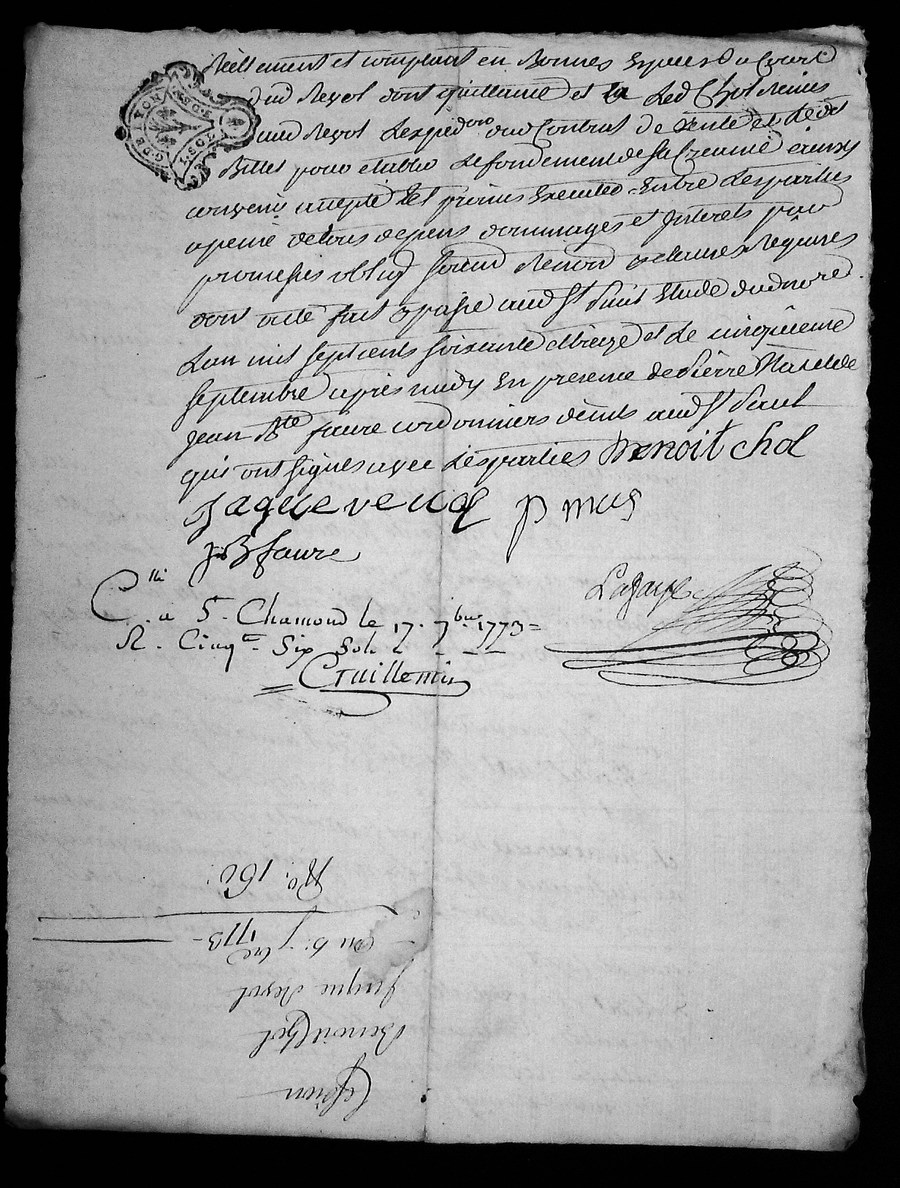 réellement et comptant en Bonnes Espèces du Cours
dud Reyol dont quittance et la Led Chol
aud Reyol L'expedon dud Contrat de vente et
Billet pour établir le fondement de sa Creance ainsy
convenu accepté Et promis Executer Entre Les parties
a peine de tous depens dommages et Interets par
promesses oblig Renon et clauses Requises
dont acte fait & passé aud St Paul Etude dud nore
Lan mil sept cents soixante et treize et Le cinquieme
septembre après midy En presence de Pierre Mas et de
Jean Bte faure cordonniers demts aud St Paul
qui ont signés avec Les parties Benoit Chol
Jaque p mas
J B faure
Lafarge
Clli a St. Chamond le 17. 7bre 1773 =
R. Cinq Six Sols
Guillemin
Cession
Benoit Chol
Jaque Reyol
Du 5: 7bre 1773
No. 160.